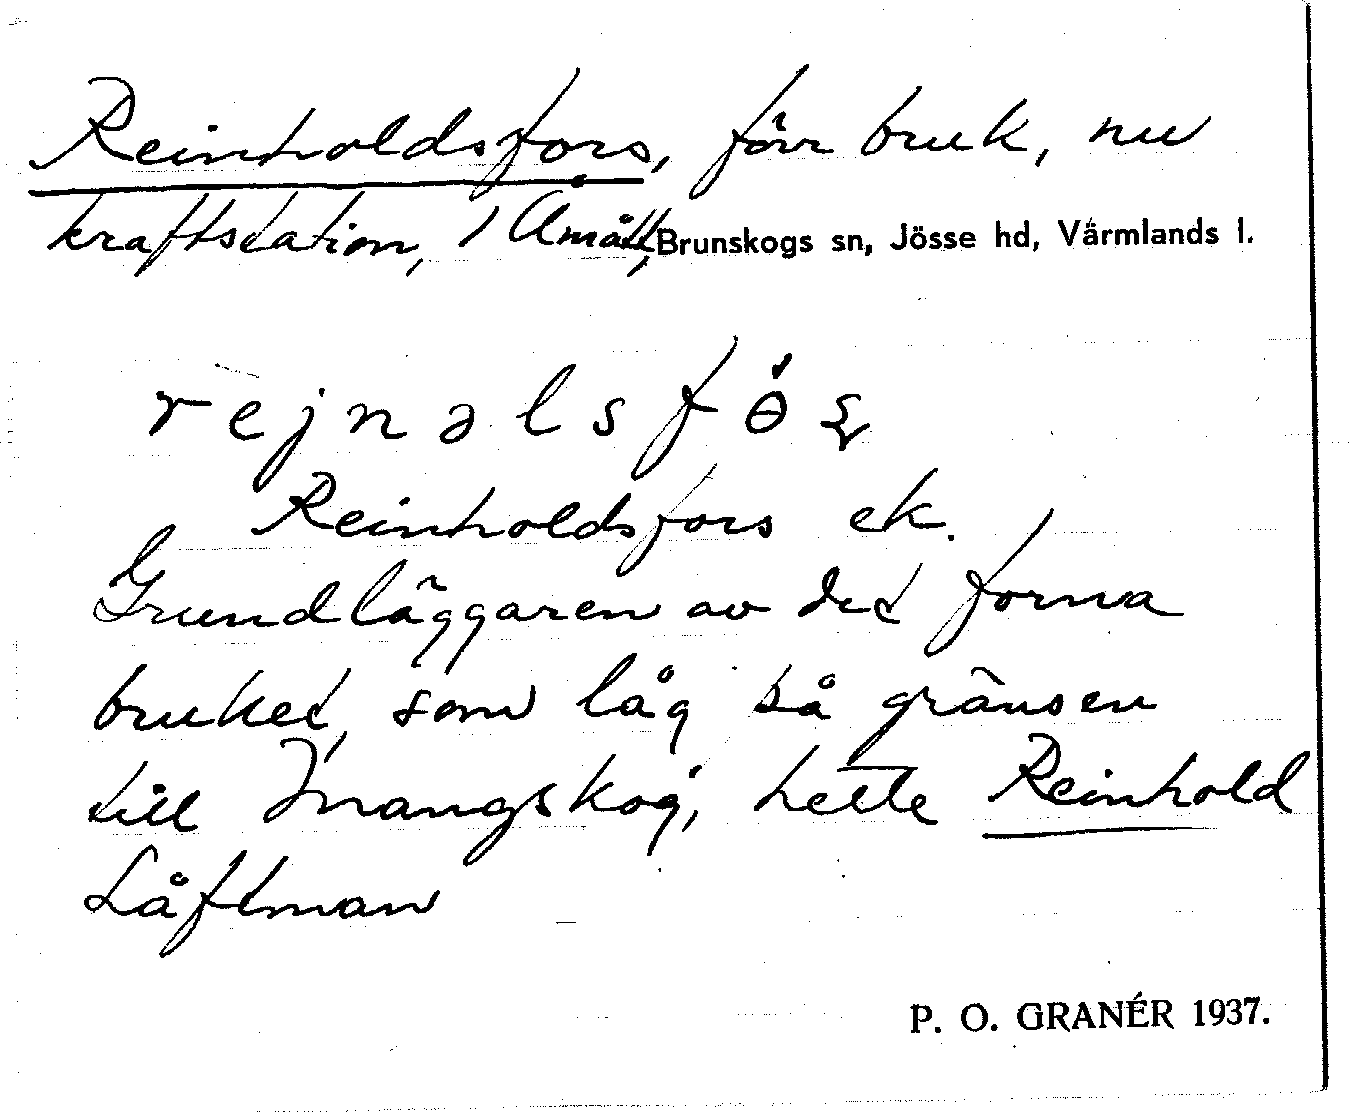 Reinholdsfors, förr bruk, nu
kraftstation, 1 Åmått, Brunskogs sn, Jösse hd, Värmlands l.
rejnəlsfɵ́ʂ
Reinholdsfors ek.
Grundläggaren av det forna
bruket, som låg på gränsen
till Mangskog, hette Reinhold
Låftman
P. O. GRANÉR 1937.